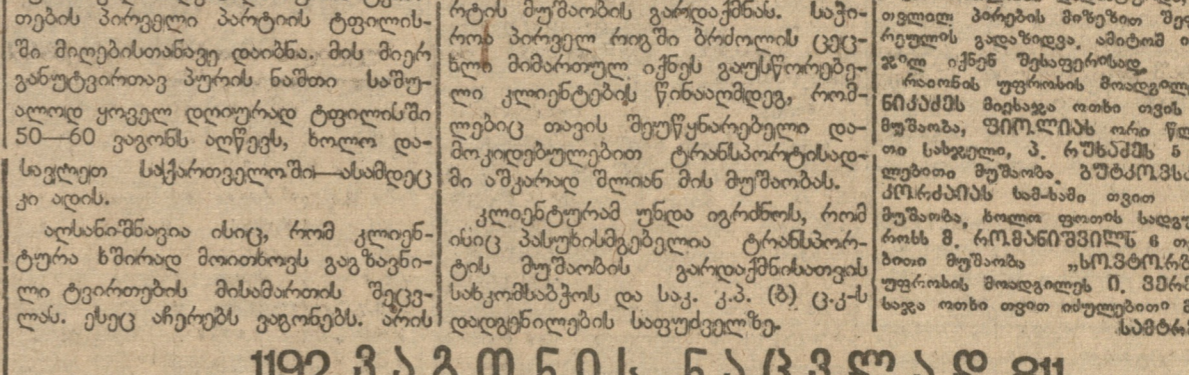 თების პირველი პარტიის ტფილის-
ში მიღებისთანავე დაიბნა. მის მიერ
განუტვირთავ პურის ნაშთი საშუ-
ალოდ ყოველ დღიურად ტფილისში
50—60 ვაგონს აღწევს, ხოლო და-
სავლეთ საქართველოში—ასამდეც
კი ადის.
აღსანიშნავია ისიც, რომ კლიენ-
ტურა ხშირად მოითხოვს გაგზავნი-
ლი ტვირთების მისამართის შეცვ-
ლას. ესეც აჩერებს ვაგონებს. არის
რტის მუშაობის გარდაქმნას. საჭი-
როა პირველ რიგში ბრძოლის ცეც-
ხლი მიმართულ იქნეს გაუსწორებე-
ლი კლიენტების წინააღმდეგ, რომ-
ლებიც თავის შეუწყნარებელი და-
მოკიდებულებით ტრანსპორტისად-
მი აშკარად შლიან მის მუშაობას.
კლიენტურამ უნდა იგრძნოს, რომ
ისიც პასუხისმგებელია ტრანსპორ-
ტის მუშაობის გარდაქმნისათვის
სახკომსაბჭოს და საკ. კ.პ. (ბ) ც.კ-ს
დადგენილების საფუძველზე.
თვლილ პირების მიზეზით
რეულის გადაზიდვა, ამიტომ
იქნენ შესაფერისად
რაიონის უფროსის მოადგილ
ნიკაძეს მიესაჯა ოთხი თვის
მუშაობა, ფიოლიას ორი
თი სასჯელი, პ. რუხაძეს 5
ლებითი მუშაობა, გუტკოვსკ
კორძაიას სამ-სამი თვით
მუშაობა, ხოლო ფოთის სადგუ
როსს მ. რომანიშვილს 6
ბითი მუშაობა „სოვტორგ
უფროსის მოადგილეს ი. ვერ
საჯა ოთხი თვით იძულებითი
სამტრ
1192 ვაგონის ნაცვლად 811